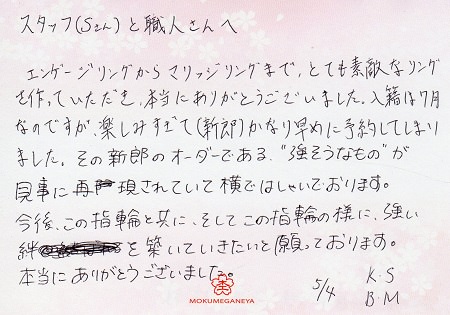 スタッフ(Sさん)と職人さんへ
エンゲージリングからマリッジリングまで、とても素敵なリング
を作っていただき、本当にありがとうございました。入籍は7月
なのですが、楽しみすぎて(新郎)かなり早めに予約してしまい
ました。その新郎のオーダーである、"強そうなもの"が
見事に再現されていて横ではしゃいでおります。
今後、この指輪と共に、そしてこの指輪の様に、強い
絆を築いていきたいと願っております。
本当にありがとうございました。
5/4 K.S
B.M
MOKUMEGANEYA